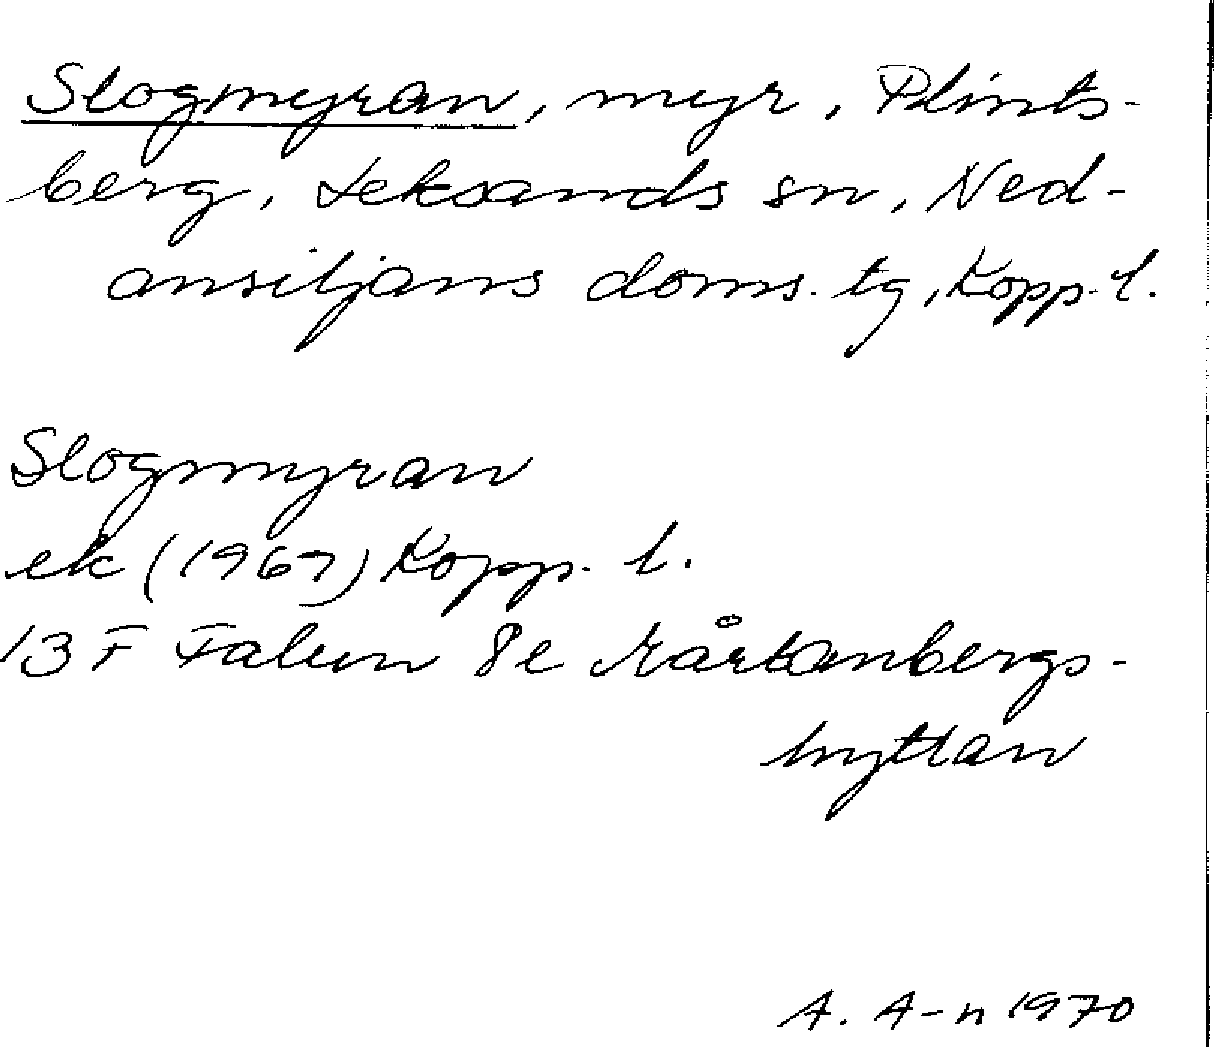 Slogmyran, myr, Plints-
berg, Leksands sn, Ned-
ansiljans doms. tg, Kopp. l.
Slogmyran
ek (1967) Kopp. l.
13 F Falun 8e Mårtanbergs-
hyttan
A. A-n 1970